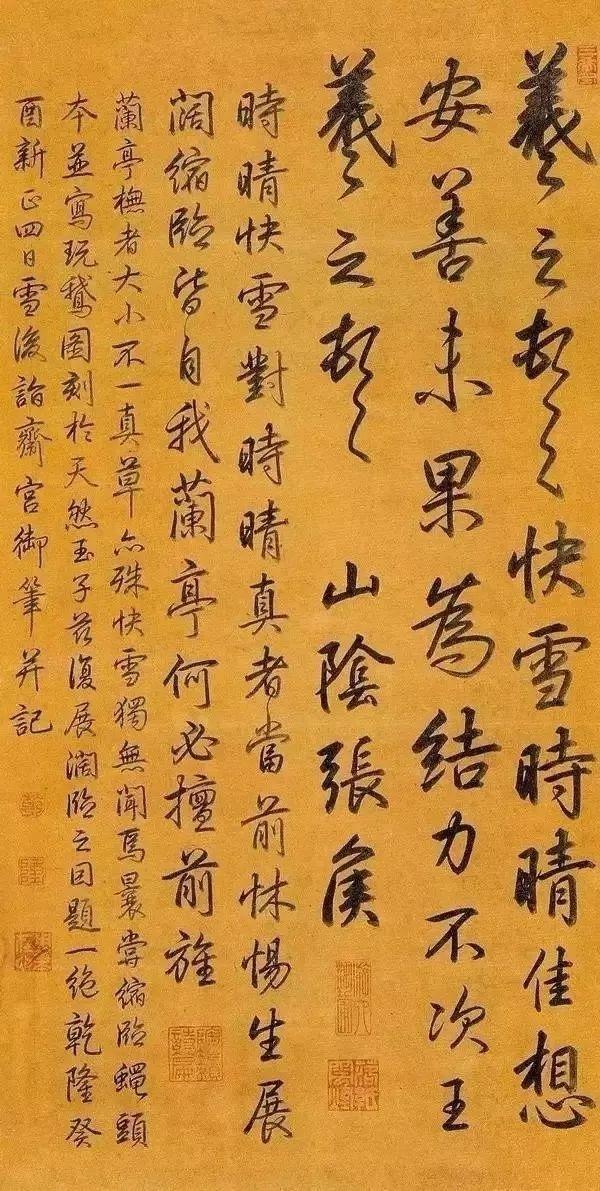 羲之頓首快雪時晴佳想
安善未果為結力不次王
羲之頓首 山陰張侯
時晴快雪對時晴真者當前怵惕生展
闊縮臨皆自我蘭亭何必擅前旌
蘭亭橅者大小不一真草亦殊快雪獨無聞焉曩嘗縮臨蠅頭
本並寫玩鵞圖刻於天然玉子茲復展濶臨之因題一絕乾隆癸
酉新正四日雪後詣齋宮御筆并記
乾
隆